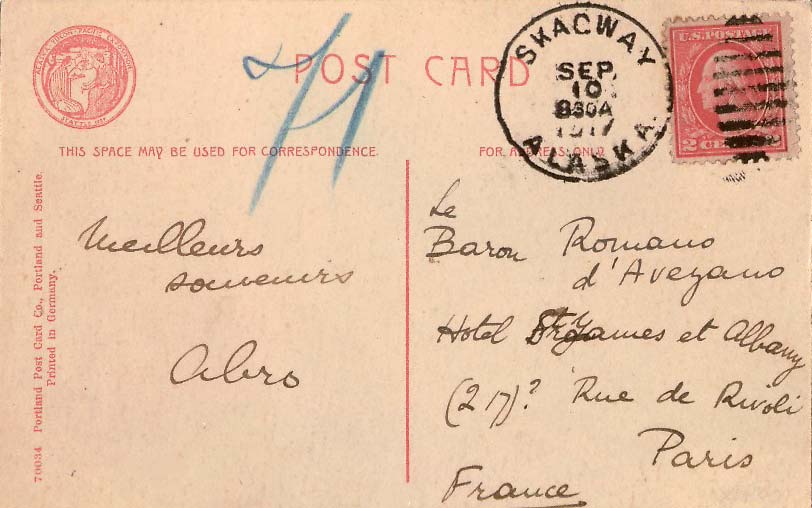 ALASKA YUKON PACIFIC EXPOSITION
SEATTLE
POST CARD
SKAGWAY
SEP
10
830A
1917
ALASKA
U.S. POSTAGE
2 CENTS
THIS SPACE MAY BE USED FOR CORRESPONDENCE.
FOR ADDRESS ONLY
70034 Portland Post Card Co., Portland and Seattle.
Printed in Germany.
Meilleurs
souvenirs
Abro
Le
Baron Romano
d'Avezano
Hotel St James et Albany
(217)? Rue de Rivoli
Paris
France